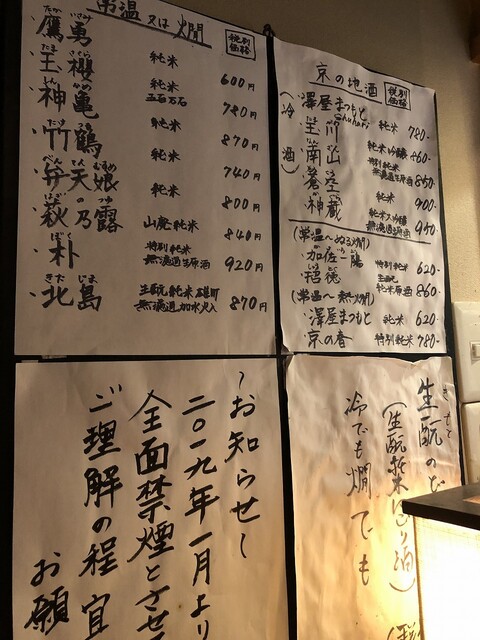 常温又は燗 税別価格
鷹勇 純米 600円
王櫻 純米 五百万石 780円
神亀 純米 870円
竹鶴 純米 740円
弁天娘 純米 800円
萩乃露 山廃純米 840円
朴 特別純米 無濾過生原酒 920円
北島 生酛純米雄町 無濾過加水火入 870円
京の地酒 税別価格
(冷酒)
澤屋まつもと Shuhari 純米 780-
玉川 純米吟醸 860-
南山 特別純米 無濾過生原酒 850-
蒼空 純米 900-
神蔵 純米大吟醸 950-
(常温〜ぬる燗)
加佐一陽 特別純米 620-
招德 生酛純米原酒 860-
(常温〜熱燗)
澤屋まつもと 純米 620-
京の春 特別純米 780-
〜お知らせ〜
二〇一九年一月より
全面禁煙とさせ
ご理解の程宜
お願
生酛のど
(生酛純米にごり酒)
冷でも燗でも